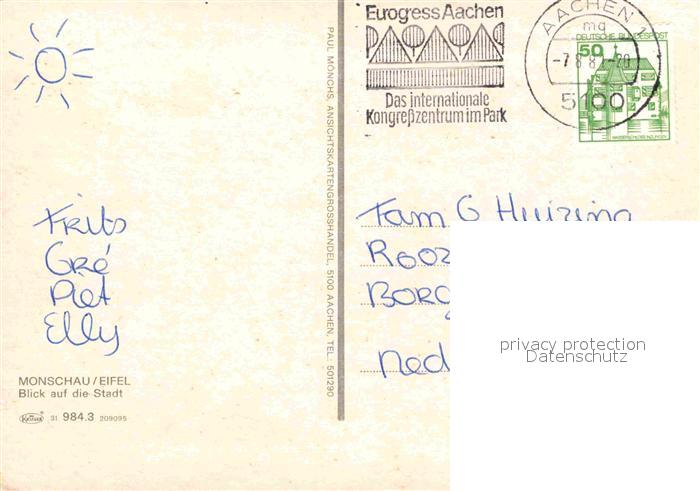 Eurogress Aachen
Das internationale
Kongreßzentrum im Park
AACHEN
mq
5100
DEUTSCHE BUNDESPOST
50
PAUL MÖNCHS, ANSICHTSKARTENGROSSHANDEL, 5100 AACHEN, TEL.: 501290
Frits
Gré
Piet
Elly
Fam G Huizing
Rooz
BORG
Ned
privacy protection
Datenschutz
MONSCHAU/EIFEL
Blick auf die Stadt
Krüger 31 984.3 209095